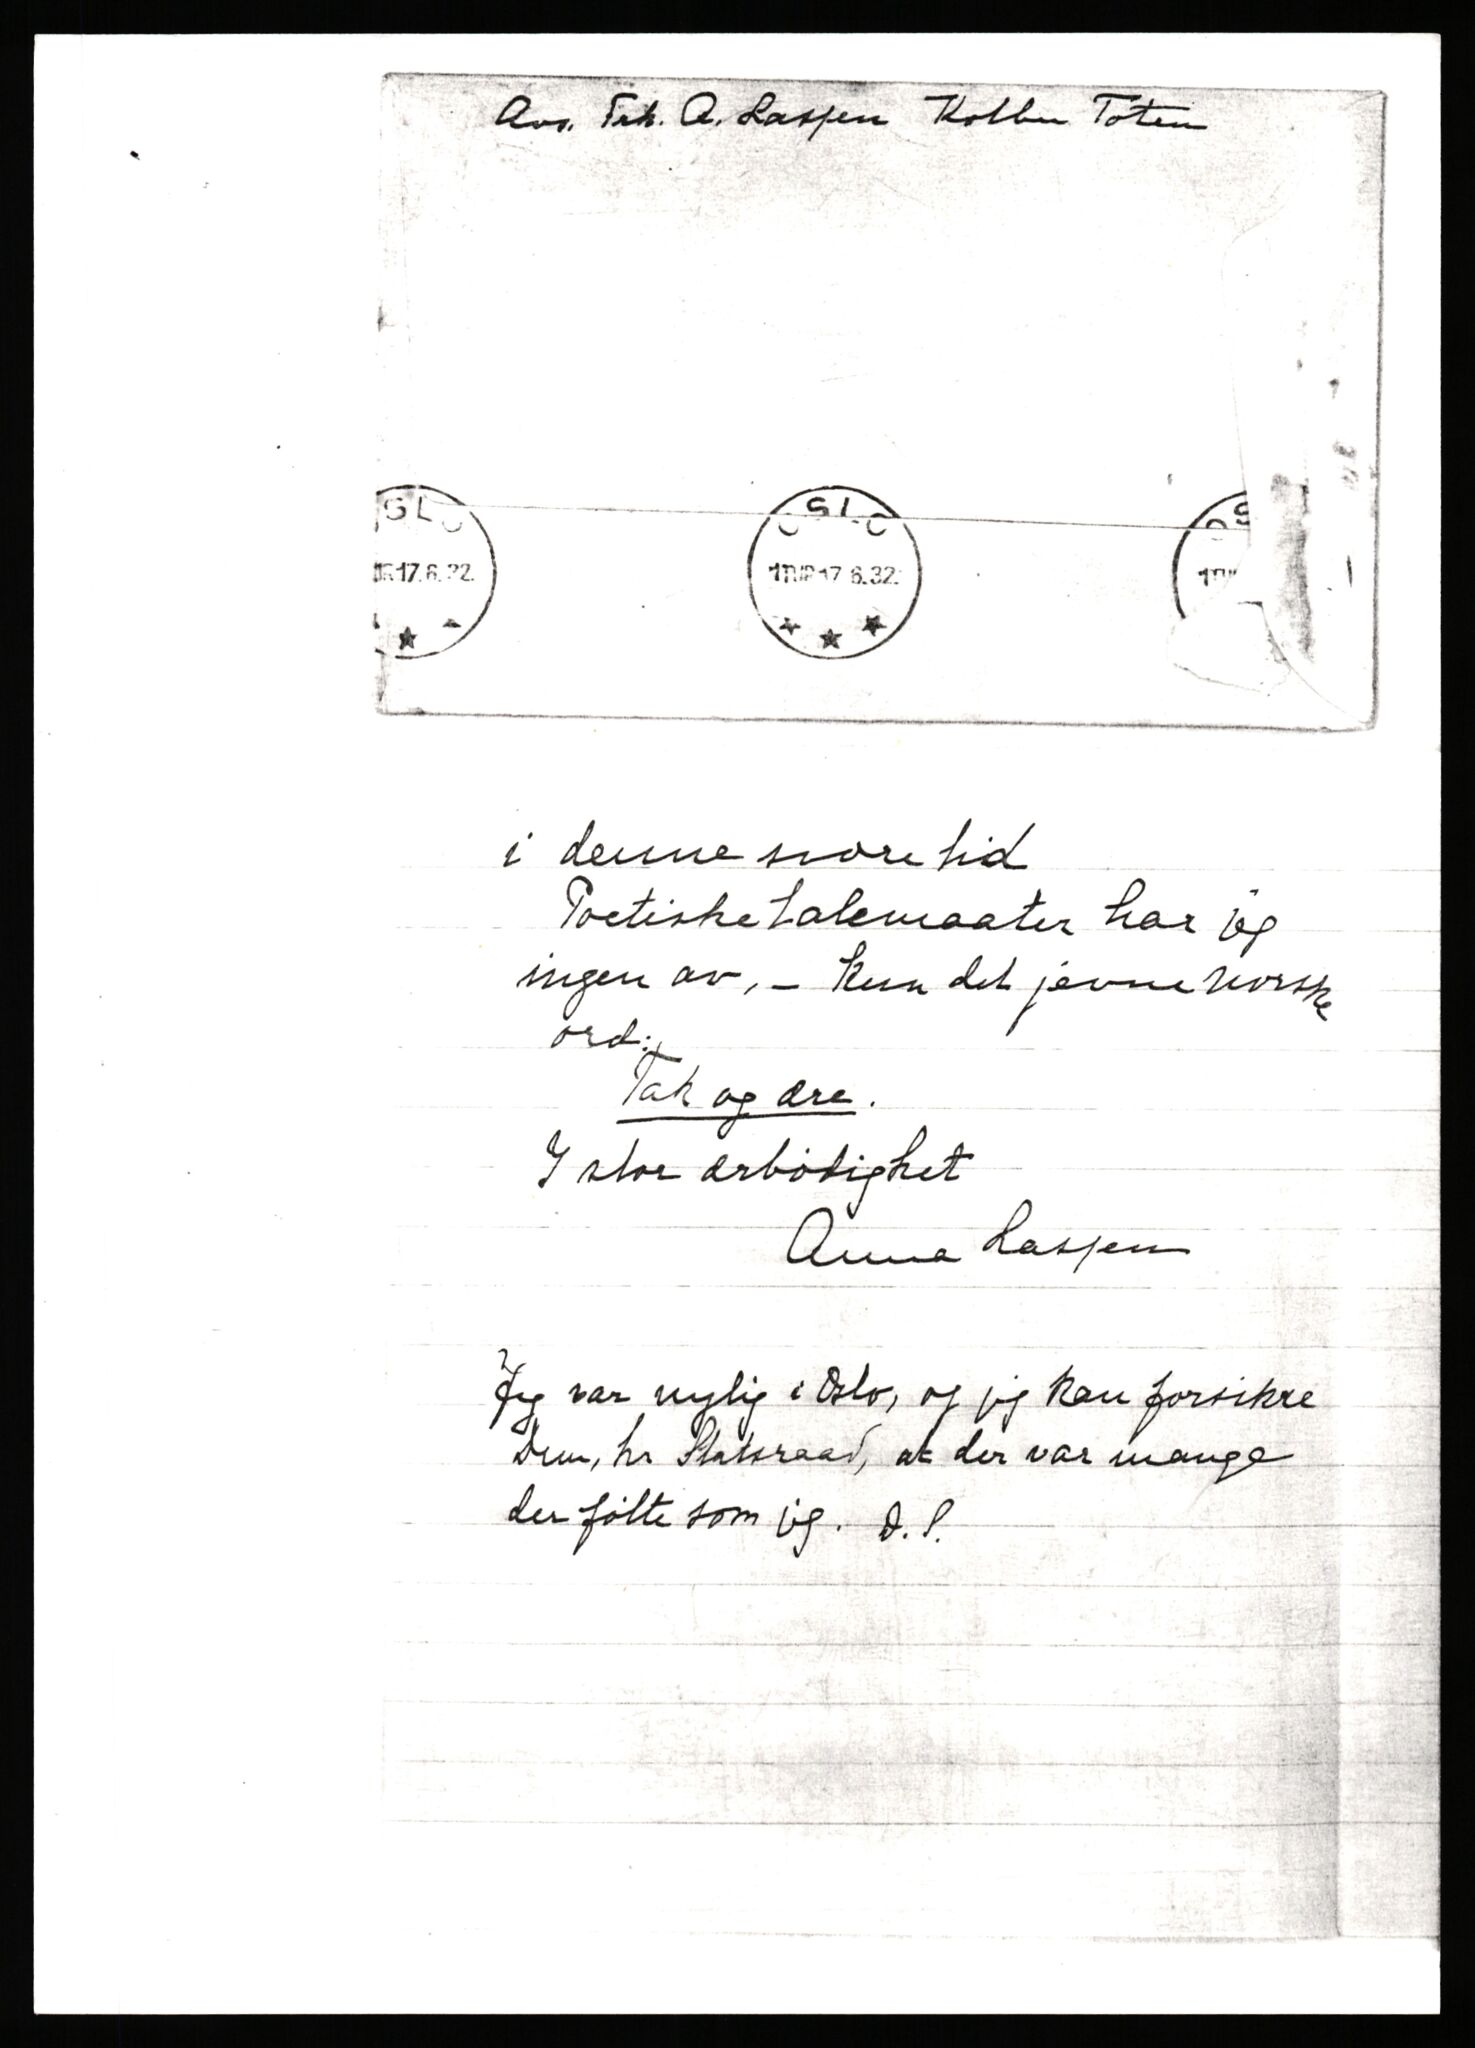 Avs. Frk. A. Laspen Kolbu Toten
OSLO
17.6.32.
OSLO
17.6.32.
OS
i denne svære tid
Poetiske talemaater har jeg
ingen av, – kun det jevne norske
ord:
Tak og ære.
I stor ærbödighet
Anna Laspen
Jeg var nylig i Oslo, og jeg kan forsikre
Dem, hr Statsraad, at der var mange
der fölte som jeg. D.S.